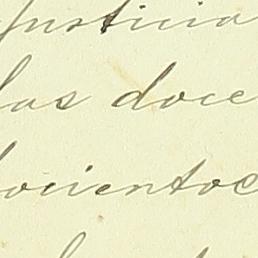 Justicia
las doce
ocientos